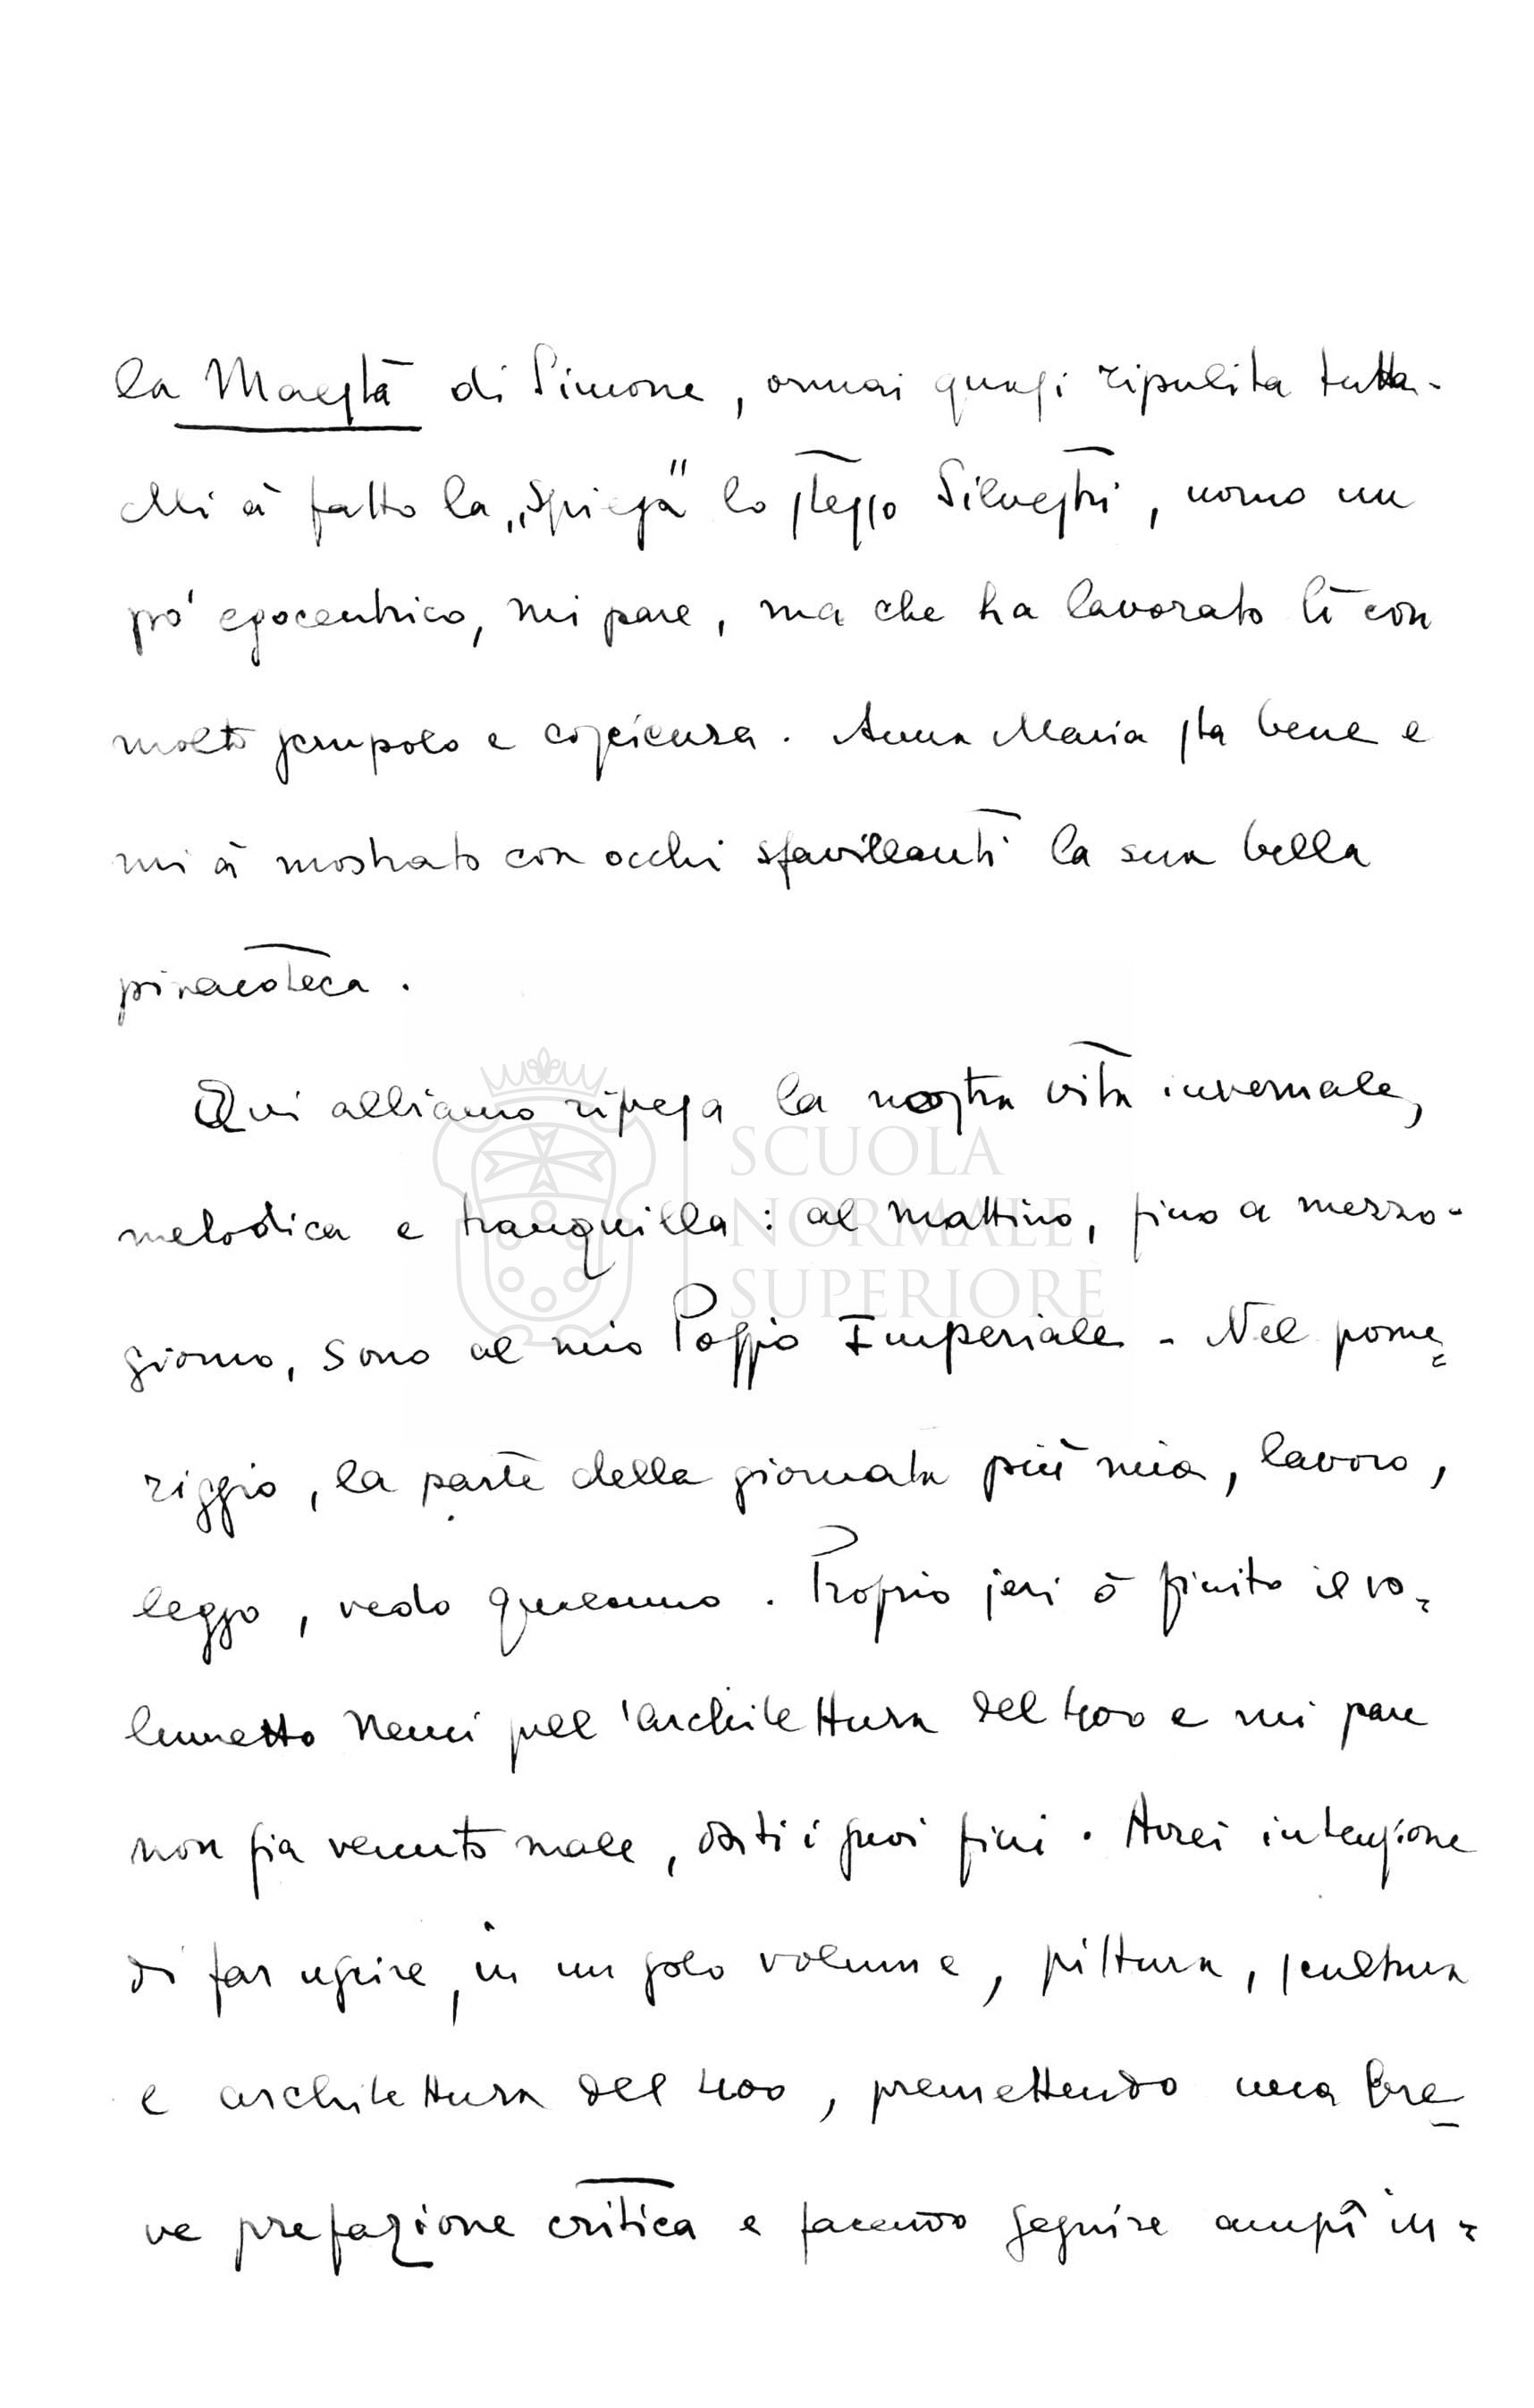 la Maestà di Simone, ormai quasi ripulita tutta.
Mi à fatto la „spiega" lo stesso Silvestri, uomo un
pò' egocentrico, mi pare, ma che ha lavorato lì con
molto scrupolo e coscienza. Anna Maria sta bene e
mi à mostrato con occhi sfavillanti la sua bella
pinacoteca.
Qui abbiamo ripresa la nostra vita invernale,
melodica e tranquilla: al mattino, fino a mezzo-
giorno, sono al mio Poggio Imperiale - Nel pome=
riggio, la parte della giornata più mia, lavoro,
leggo, vedo qualcuno. Proprio jeri ò finito il vo=
lumetto Nemi sull'architettura del 400 e mi pare
non sia venuto male, dati i suoi fini. Avrei intenzione
di far uscire, in un solo volume, pittura, scultura
e architettura del 400, premettendo una bre=
ve prefazione critica e facendo seguire ampî in=
SCUOLA
NORMALE
SUPERIORE